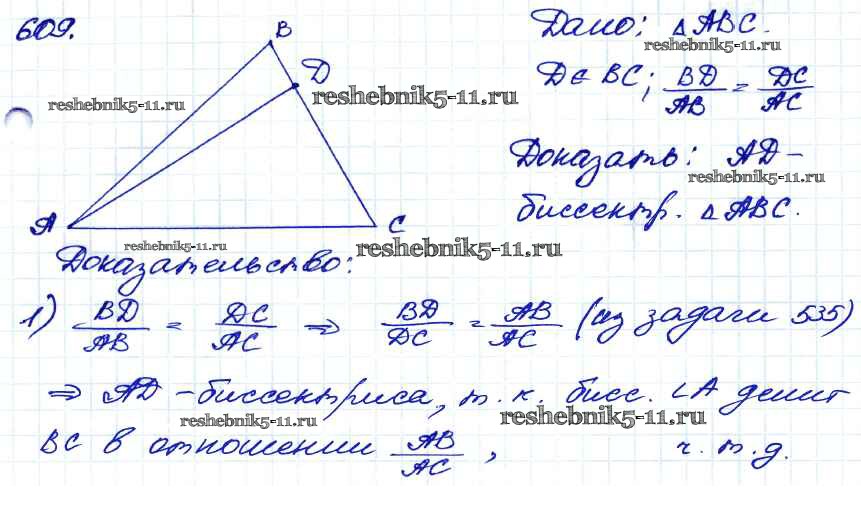 609.
B
D
A
C
Дано: △ABC.
reshebnik5-11.ru
D∈BC; BD/AB = DC/AC
reshebnik5-11.ru
reshebnik5-11.ru
Доказать: AD-
reshebnik5-11.ru
биссектр. △ABC.
reshebnik5-11.ru
reshebnik5-11.ru
Доказательство:
1) BD/AB = DC/AC ⇒ BD/DC = AB/AC (из задачи 535)
⇒ AD - биссектриса, т.к. бисс. ∠A делит
reshebnik5-11.ru
reshebnik5-11.ru
BC в отношении AB/AC, ч.т.д.